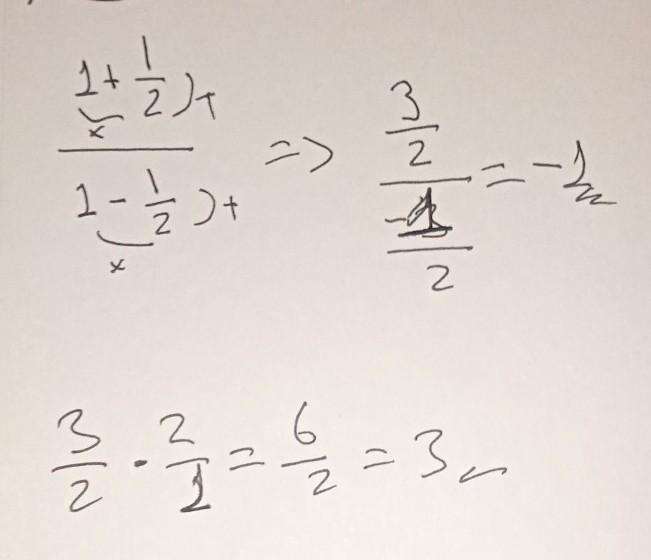 (1 + 1/2) / (1 - 1/2) => (3/2) / (1/2) = -1
3/2 · 2/1 = 6/2 = 3